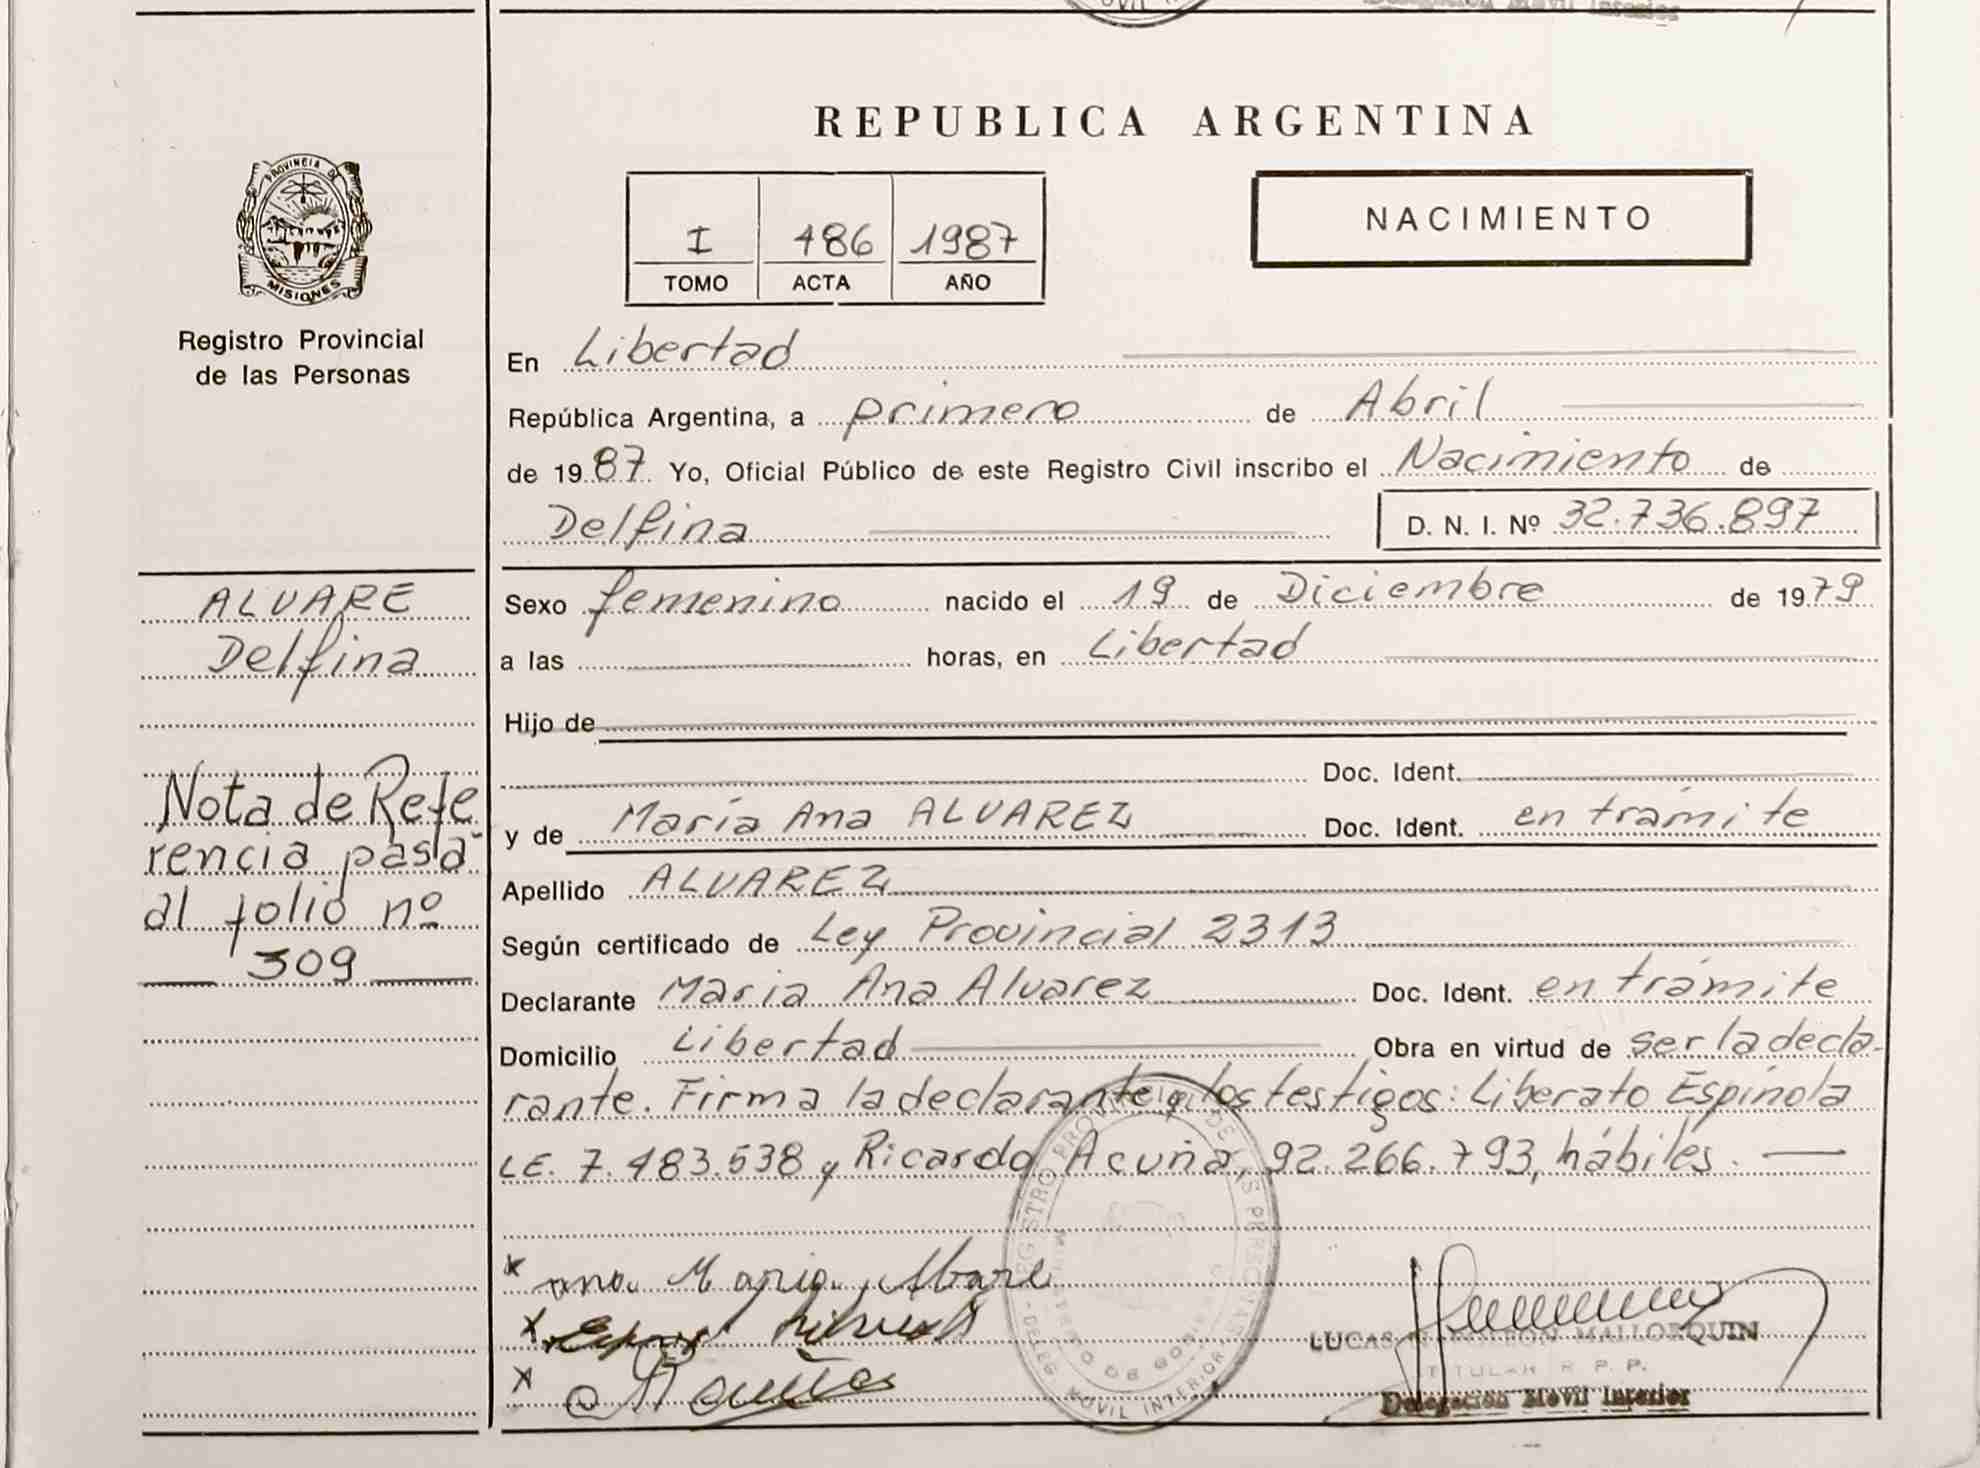 Delegación Móvil Interior
REPUBLICA ARGENTINA
PROVINCIA DE
MISIONES
Registro Provincial
de las Personas
I 486 1987
TOMO ACTA AÑO
NACIMIENTO
En Libertad
República Argentina, a primero de Abril
de 1987 Yo, Oficial Público de este Registro Civil inscribo el Nacimiento de
Delfina D. N. I. Nº 32.736.897
ALVARE
Delfina
Nota de Refe
rencia pasa
al folio nº
309
Sexo femenino nacido el 19 de Diciembre de 1979
a las horas, en Libertad
Hijo de
Doc. Ident.
y de María Ana ALVAREZ Doc. Ident. en trámite
Apellido ALVAREZ
Según certificado de Ley Provincial 2313
Declarante María Ana Alvarez Doc. Ident. en trámite
Domicilio Libertad Obra en virtud de ser la decla-
rante. Firma la declarante y los testigos: Liberato Espínola
LE. 7.483.538 y Ricardo Acuña, 92.266.793, hábiles.
REGISTRO PROVINCIAL DE LAS PERSONAS
DELEG. MOVIL INTERIOR
x ana Maria Alvare
x
x Acuña
LUCAS NAPOLEON MALLORQUIN
TITULAR R. P. P.
Delegación Móvil Interior